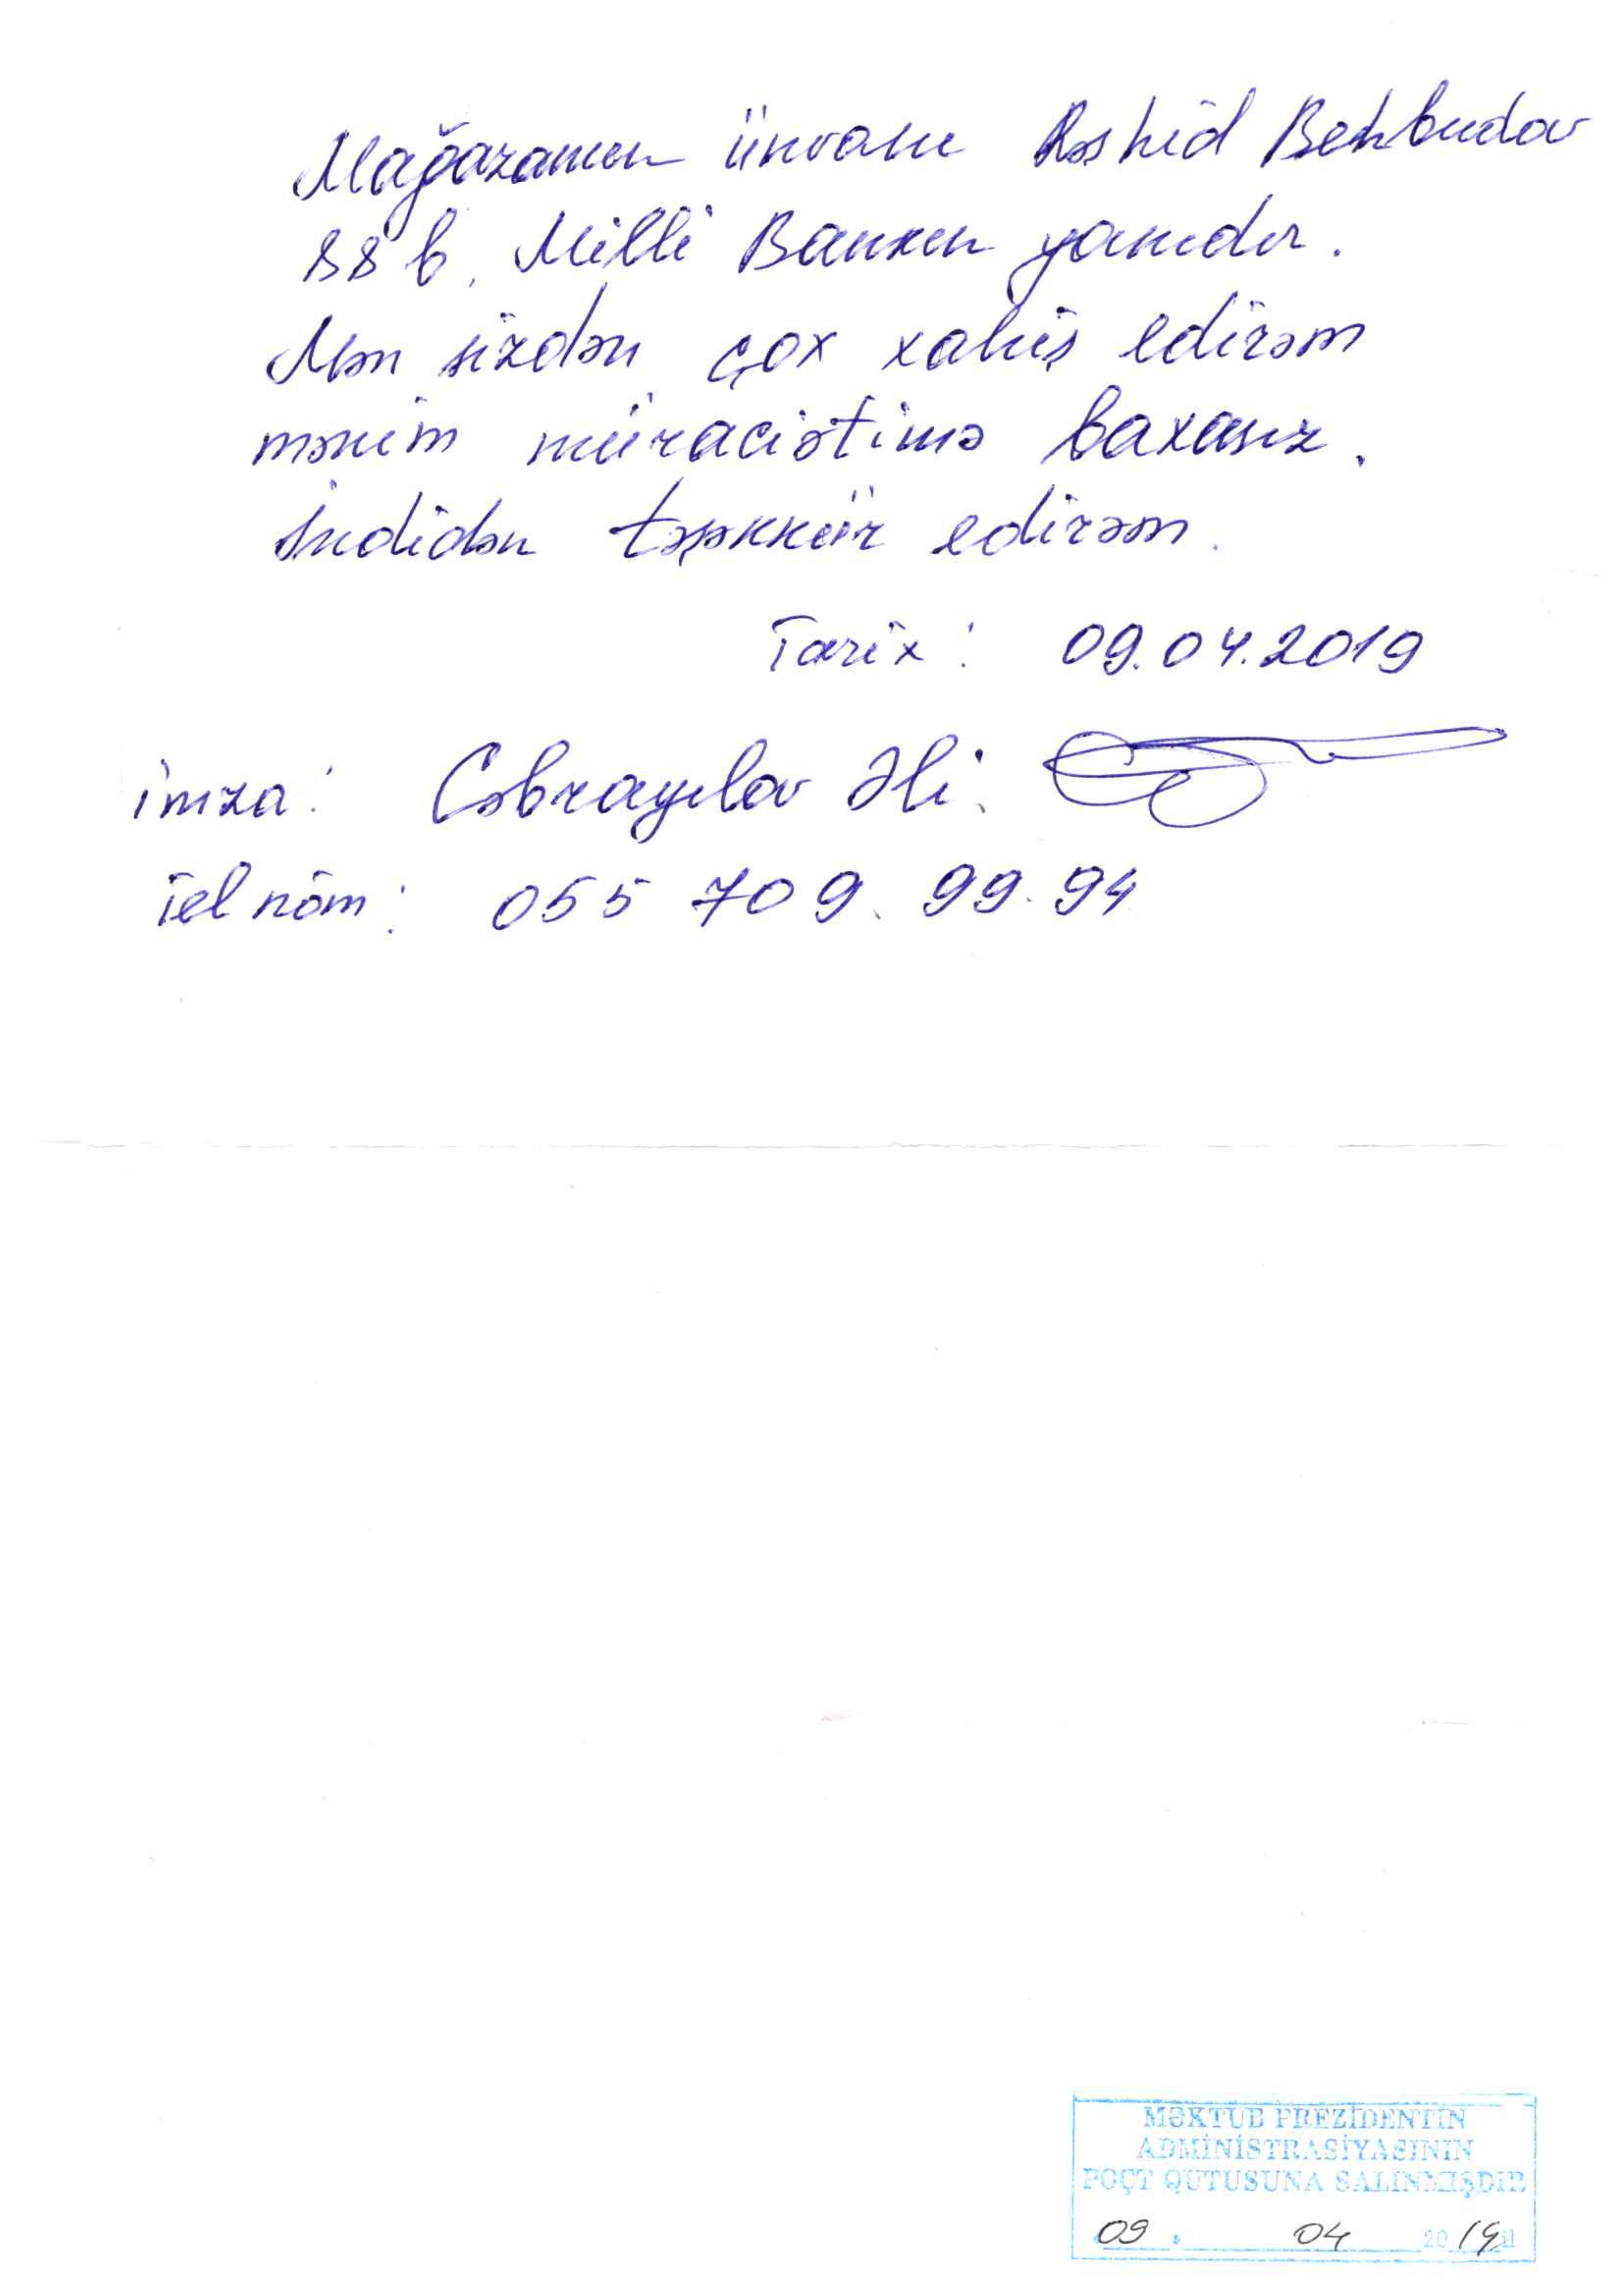 Mağazamın ünvanı Rəshid Behbudov
88 b. Milli Bankın yanıdır.
Mən sizdən çox xahiş edirəm
mənim müraciətimə baxasız.
İndidən təşəkkür edirəm.
Tarix: 09.04.2019
imza: Cəbrayılov Əli.
Tel nöm: 055 709.99.94
MƏKTUB PREZİDENTİN
ADMİNİSTRASİYASININ
POÇT QUTUSUNA SALINMIŞDIR
09 04 2019 il